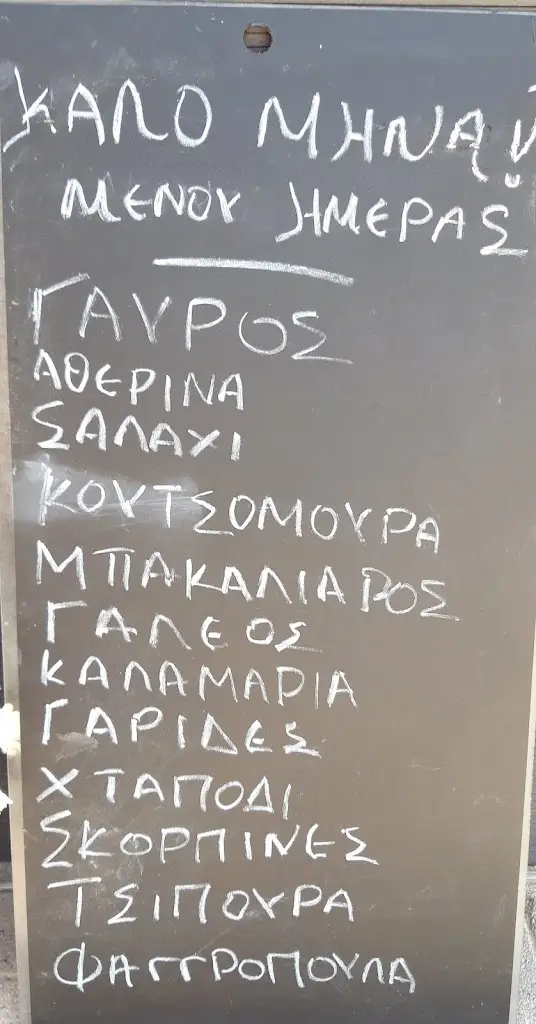 ΚΑΛΟ ΜΗΝΑ!
ΜΕΝΟΥ ΗΜΕΡΑΣ
ΓΑΥΡΟΣ
ΑΘΕΡΙΝΑ
ΣΑΛΑΧΙ
ΚΟΥΤΣΟΜΟΥΡΑ
ΜΠΑΚΑΛΙΑΡΟΣ
ΓΑΛΕΟΣ
ΚΑΛΑΜΑΡΙΑ
ΓΑΡΙΔΕΣ
ΧΤΑΠΟΔΙ
ΣΚΟΡΠΙΝΕΣ
ΤΣΙΠΟΥΡΑ
ΦΑΓΓΡΟΠΟΥΛΑ